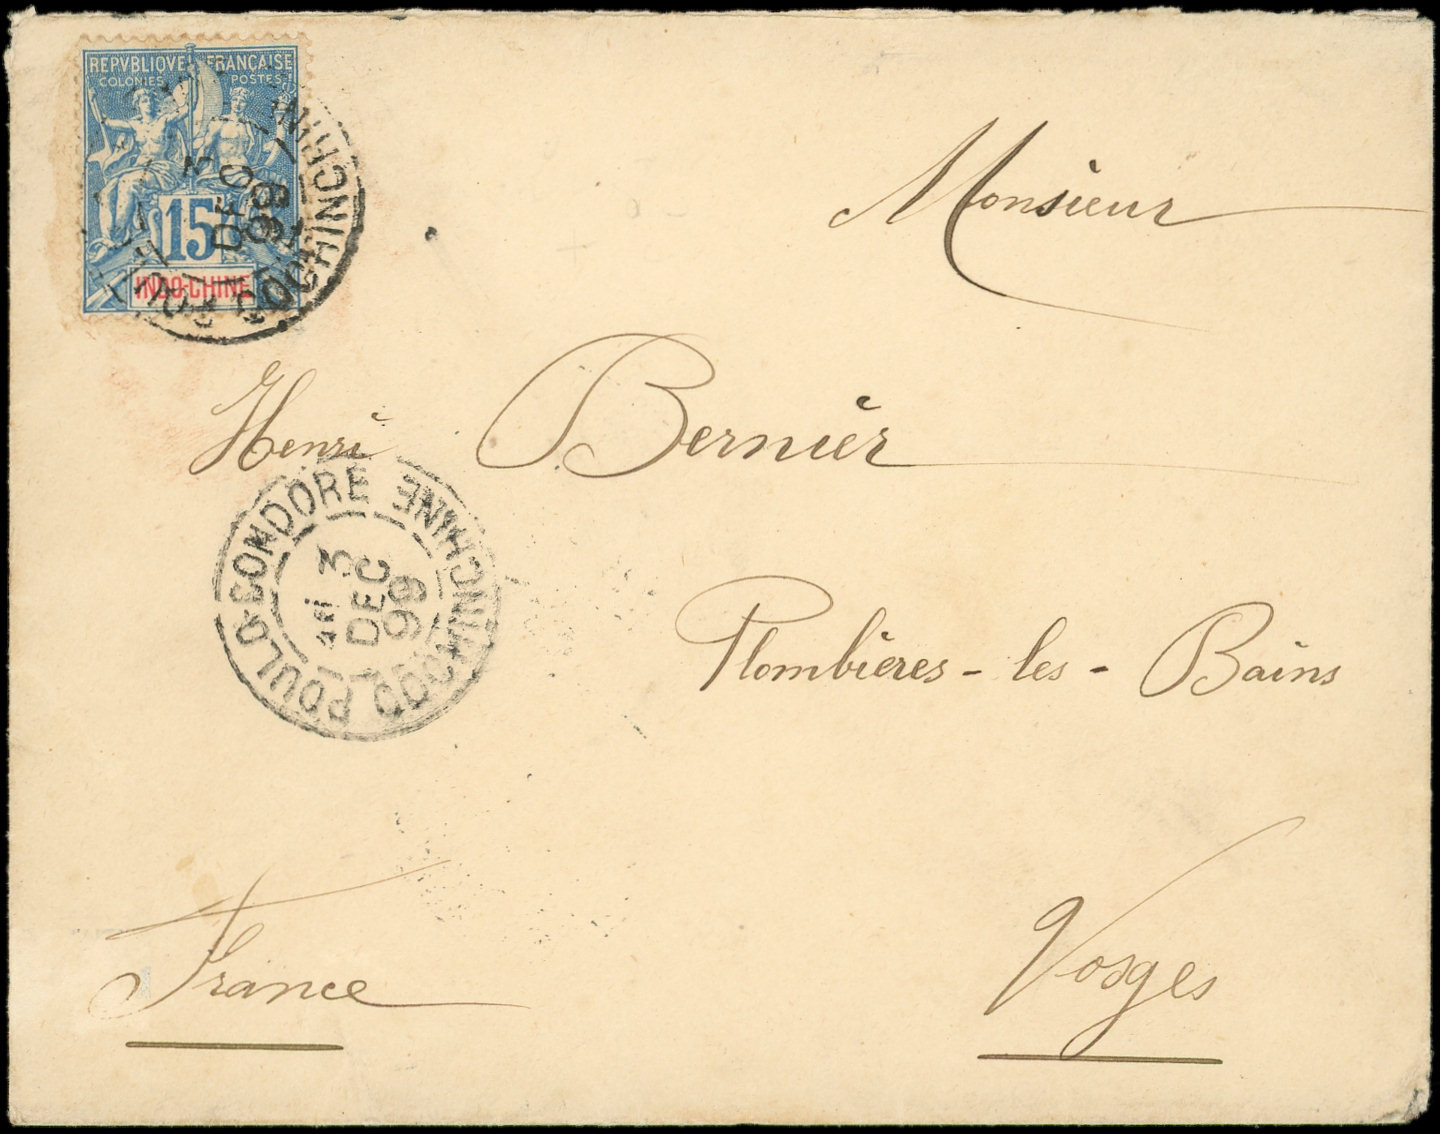 REPVBLIQVE FRANÇAISE
COLONIES POSTES
15
INDO-CHINE
COCHINCHINE
3
DEC
99
Monsieur
Henri Bernier
POULO-CONDORE COCHINCHINE
3
DEC
99
Plombières-les-Bains
Vosges
France